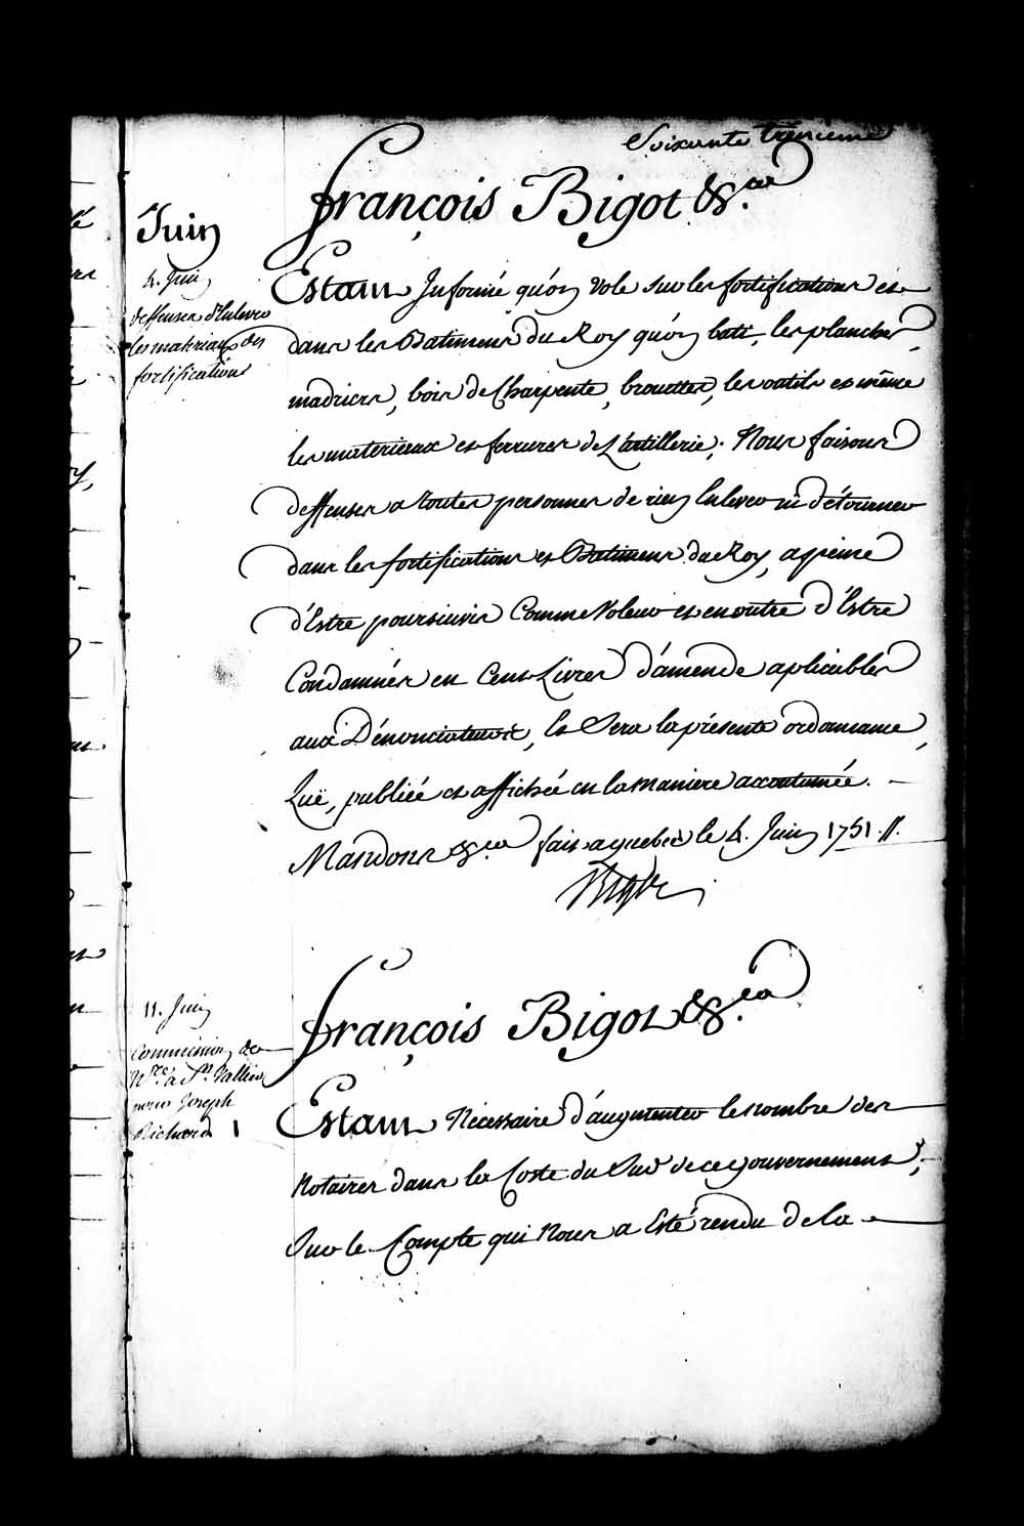 Soixante treizieme
françois Bigot &.ca
Juin
4. Juin
deffenses d'Enlever
les materiaux des
fortifications
Estant Informé qu'on vole sur les fortifications et
dans les Batimens du Roy qu'on batit, les planches,
madriers, bois de Charpente, brouettes, les outils et même
les materieaux et ferrures de L'artillerie; Nous faisons
deffenses a toutes personnes de rien Enlever ni détourner
dans les fortifications et Batimens du Roy, a peine
d'Estre poursuivis Comme Voleur et en outre d'Estre
Condamnés en Cent Livres d'amende aplicables
aux Dénonciateurs, Et Sera la présente ordonnance,
Luë, publiée et affichée en la maniere accoutumée.
Mandons &.ca fait a quebec le 4. Juin 1751.//.
Bigot
françois Bigot &.ca
11. Juin
Commission de
N.re a S.t Vallier
pour Joseph
Richard 1
Estant Nécessaire d'augmenter le nombre des
Notaires dans la Coste du Sud de ce gouvernement,
Sur le Compte qui Nous a Esté rendu de la